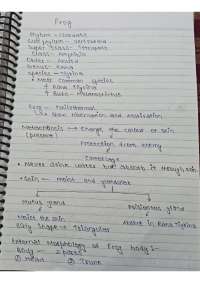 Frog
Phylum - Chordata
Sub phylum - Vertebrata
Super class - Tetrapoda
Class - Amphibia
Order - Anura
Genus - Rana
Species - tigrina
• Most common species
Rana tigrina
Bufo - melanostictus
Frog - Poikilothermal
like show hibernation and aestivation
Metachrosis → Change the colour of skin
(present)
Protection from enemy
Camouflage
• Never drink water but absorb it through skin
• Skin - moist and glandular
Mucus gland Poisonous gland
Moist the skin Absent in Rana tigrina
Body shape - Triangular
External Morphology of Frog body :-
Body - 2 parts
① Head ② Trunk